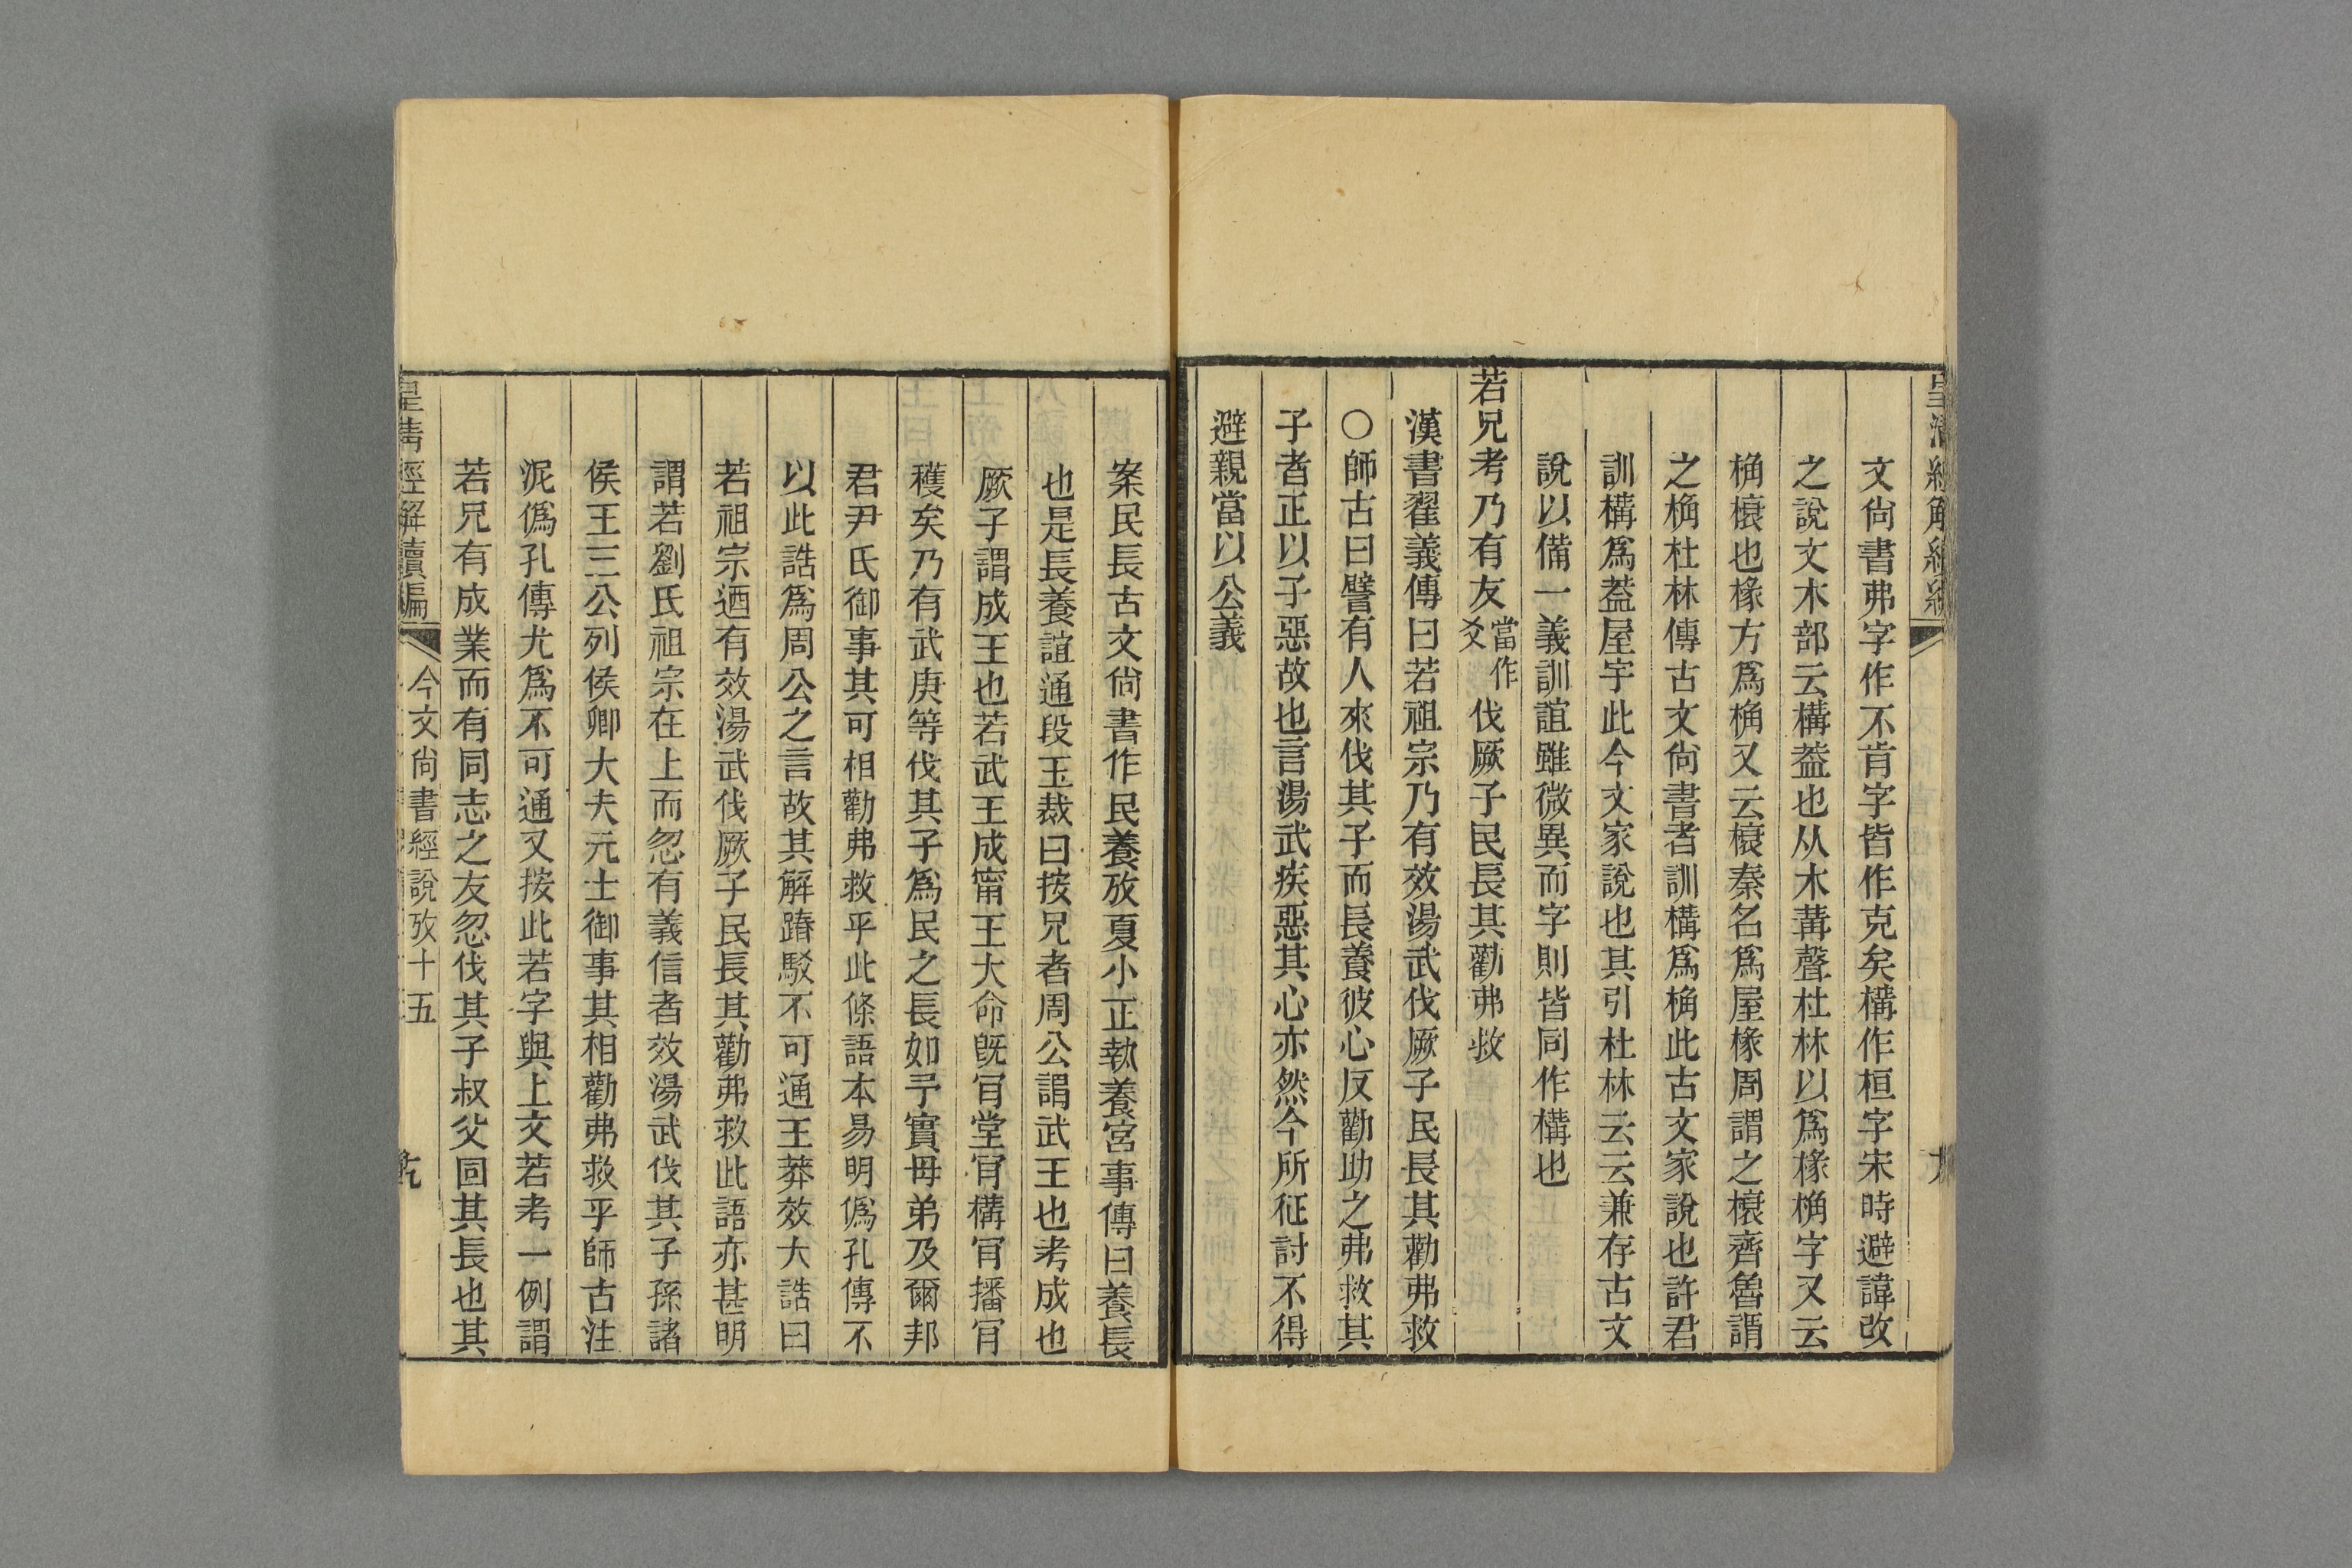 文尙書弗字作不肯字皆作克矣構作桓字宋時避諱改
之說文木部云構葢也从木冓聲杜林以爲椽桷字又云
桷榱也椽方爲桷又云榱秦名爲屋椽周謂之榱齊魯謂
之桷杜林傳古文尙書者訓構爲桷此古文家說也許君
訓構爲葢屋宇此今文家說也其引杜林云云兼存古文
說以備一義訓誼雖微異而字則皆同作構也
若兄考乃有友當作爻伐厥子民長其勸弗救
漢書翟義傳曰若祖宗乃有效湯武伐厥子民長其勸弗救
〇師古曰譬有人來伐其子而長養彼心反勸助之弗救其
子者正以子惡故也言湯武疾惡其心亦然今所征討不得
避親當以公義
案民長古文尙書作民養攷夏小正執養宮事傳曰養長
也是長養誼通段玉裁曰按兄者周公謂武王也考成也
厥子謂成王也若武王成甯王大命旣肯堂肯構肯播肯
穫矣乃有武庚等伐其子爲民之長如予實毋弟及爾邦
君尹氏御事其可相勸弗救乎此條語本易明僞孔傳不
以此誥爲周公之言故其解踳駮不可通王莽效大誥曰
若祖宗迺有效湯武伐厥子民長其勸弗救此語亦甚明
謂若劉氏祖宗在上而忽有義信者效湯武伐其子孫諸
侯王三公列侯卿大夫元士御事其相勸弗救乎師古注
泥僞孔傳尤爲不可通又按此若字與上文若考一例謂
若兄有成業而有同志之友忽伐其子叔父固其長也其
皇淸經解續編
今文尙書經說攷十五